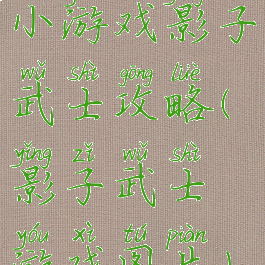 小游戏影子
wǔ shì gōng lüè
武士攻略(
yǐng zǐ wǔ shì
影子武士
yóu xì tú piàn
游戏图片)